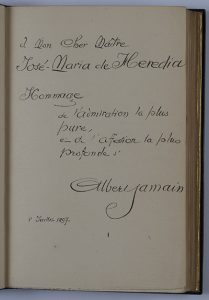 à Mon Cher Maître
José-Maria de Heredia
Hommage
de l'admiration la plus
pure,
et de l'affection la plus
profonde
Albert Samain
Juillet 1897.